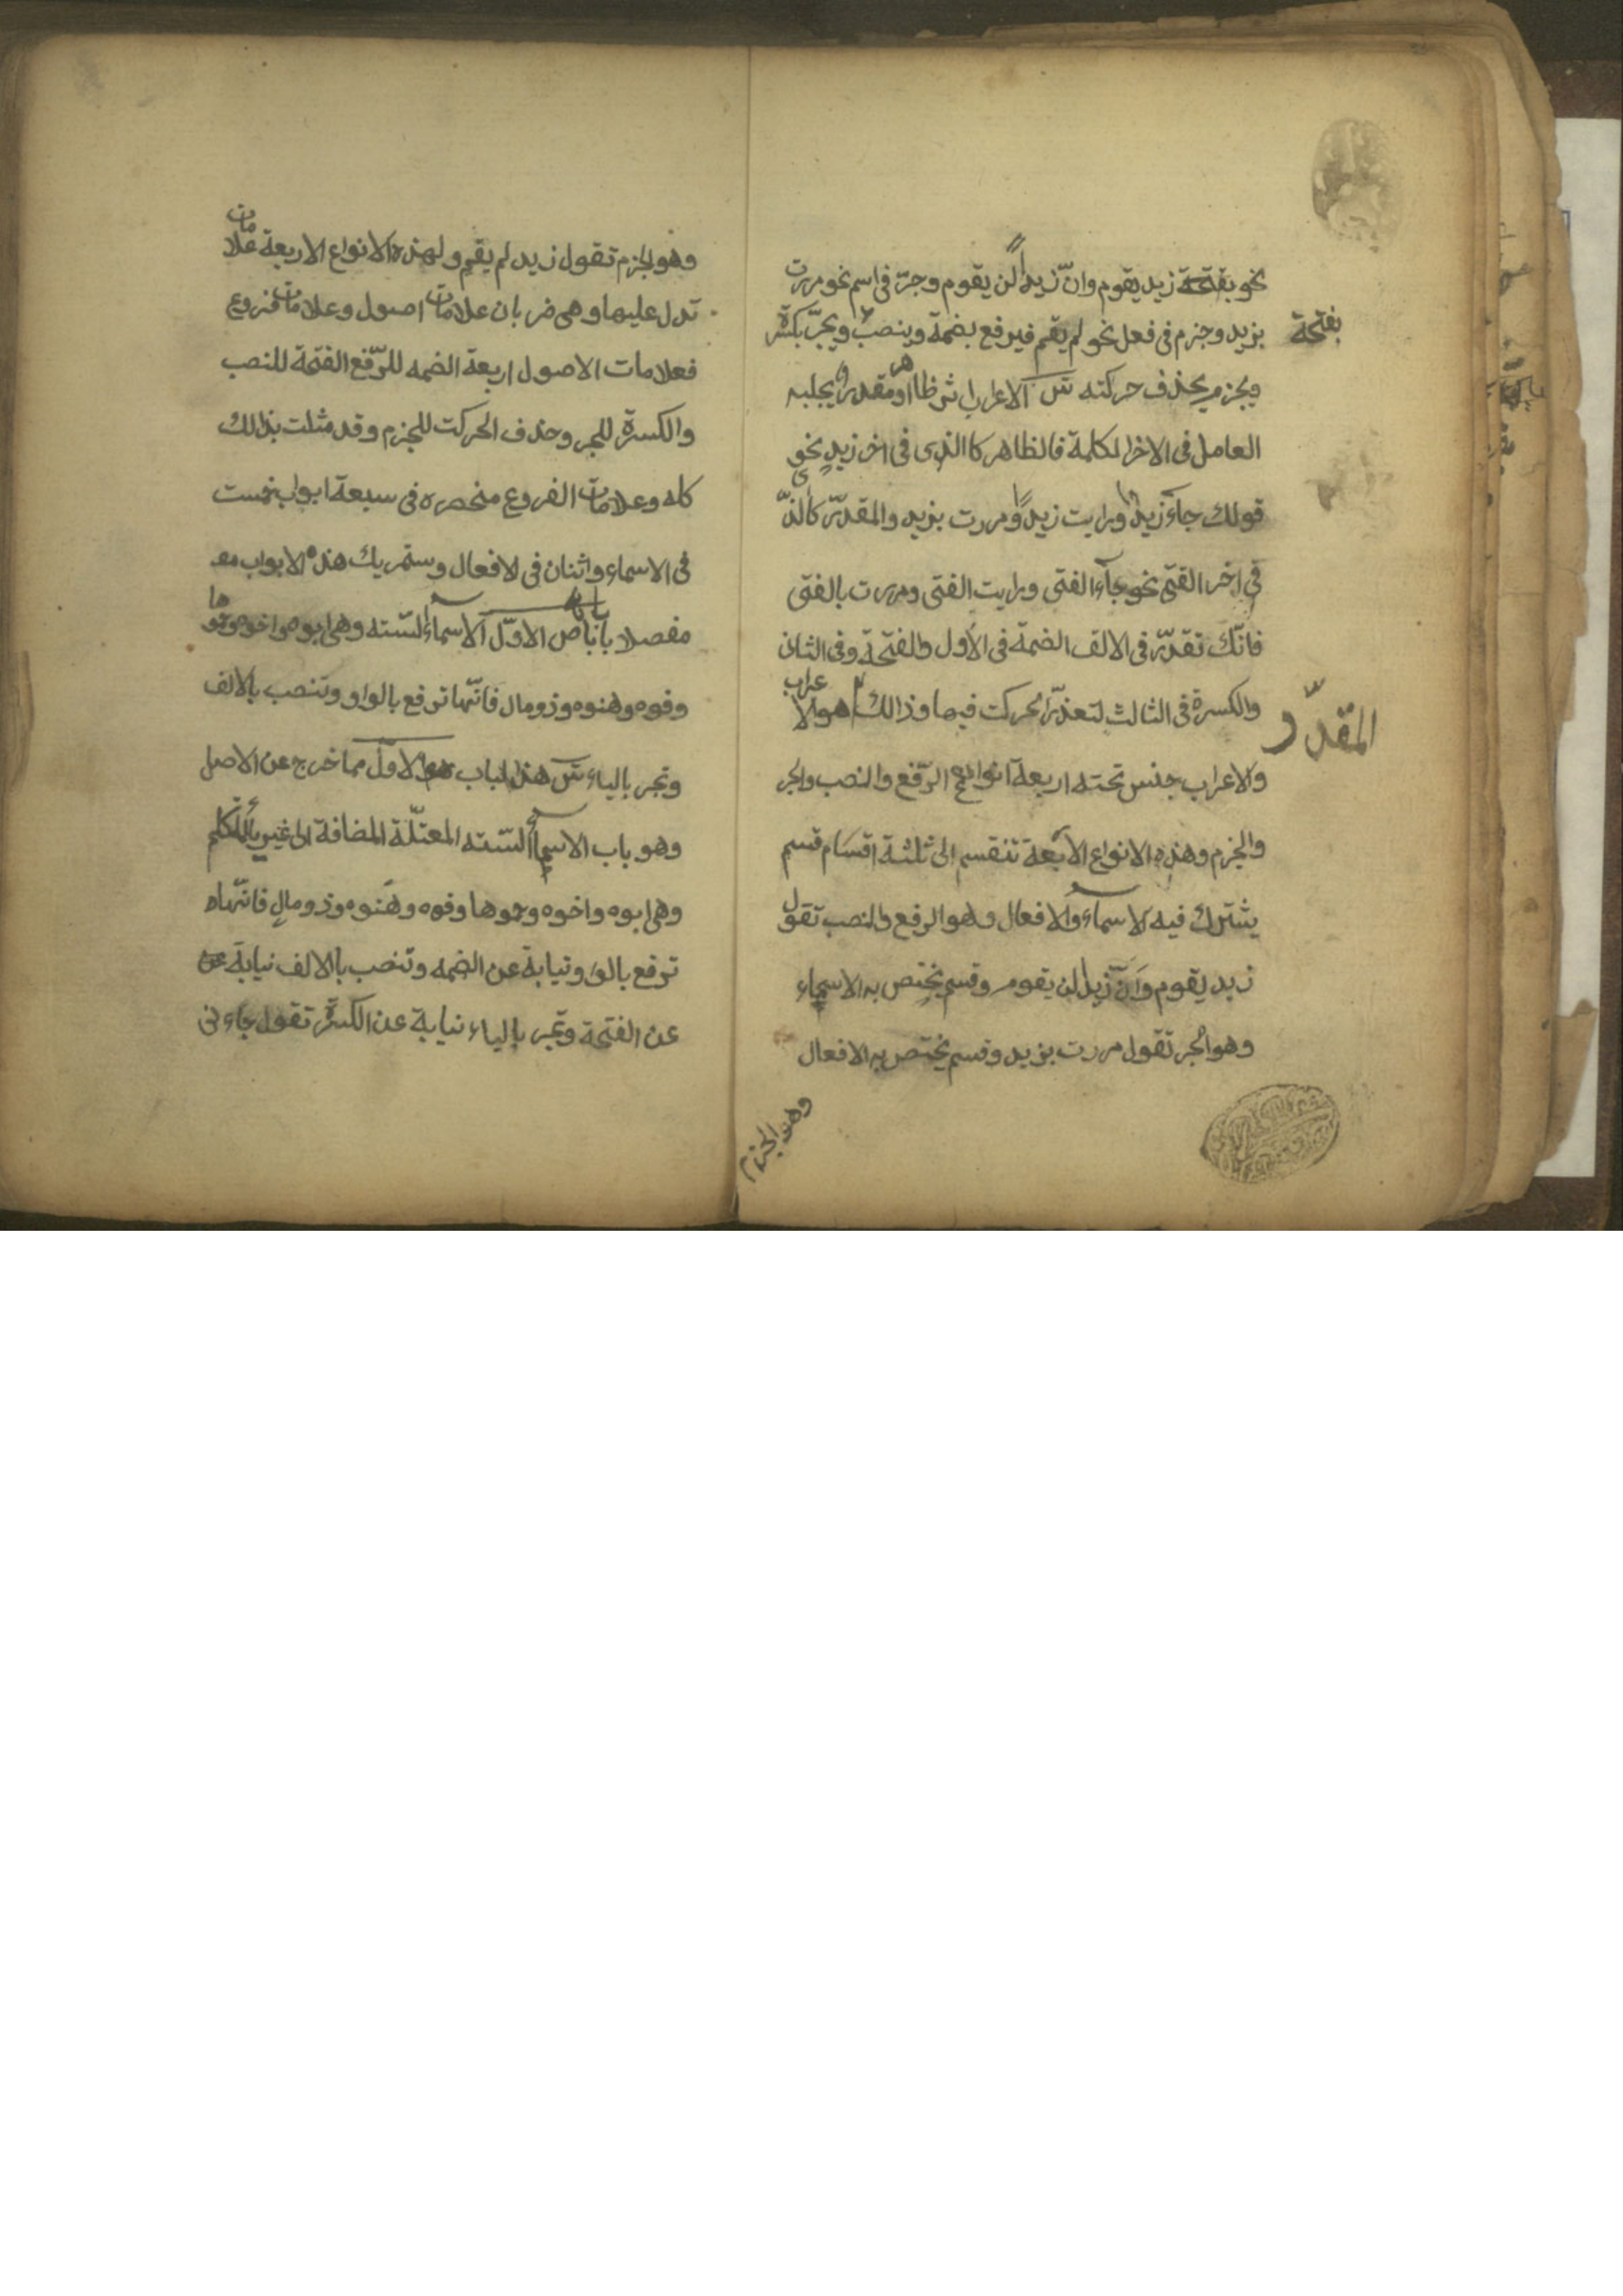 نحو بفتحة زيد يقوم وانّ زيداً لن يقوم وجرّ فى اسم نحو مررت
بفتحة
بزيد وجزم فى فعل نحو لم يقم فيرفع بضمة وينصب ويجرّ بكسرة
ويجزم بحذف حركته ش الاعراب اثر ظاهر او مقدر يجلبه
العامل فى الاخر الكلمة فالظاهر كاالذى فى اخر زيدٍ نحو
قولك جآء زيد ورايت زيداً ومررت بزيد والمقدّر كالذّى
فى اخر الفتى نحو جآء الفتى ورايت الفتى ومررت بالفتى
فانّك تقدّر فى الالف الضمة فى الأول والفتحة وفى الثانى
والكسرة فى الثالث لتعذّر الحركت فيها وذالك هو الاعراب
المقدّر
والاعراب جنس تحته اربعة انواع الرّفع والنصب والجر
والجزم وهذه الانواع الاربعة تنقسم الى ثلثة اقسَام قسم
يشترك فيه الاسماء والافعال وهو الرفع والنصب تقول
زيد يقوم وَانّ زيدا لن يقوم وقسم يختص به الاسماء
وهو الجر تقول مررت بزيد وقسم يختص به الافعال
وهو الجزم
وهو الجزم تقول زيد لم يقم ولهذه الانواع الاربعة علامات
تدل عليها وهى ضربان علامات اصول وعلامات فروع
فعلامات الاصول اربعة الضمه للرّفع الفتحة للنصب
والكسرة للجر وحذف الحركت للجزم وقد مثلت بذالك
كله وعلامات الفروع منحصره فى سبعة ابواب خمست
فى الاسماء واثنان فى الافعال وستمر بك هذه الابواب
مفصلا بابا بابا ص الاوّل الاسماء الستّه وهى ابوه واخوه وحموها
وفوه وهنوه وذومال فانّها ترفع بالواو وتنصب بالالف
وتجر بالياء ش هذا الباب هو الاول مما خرج عن الاصل
وهو باب الاسمأ الستّه المعتلّة المضافة الى غير يأ المتكلم
وهى ابوه واخوه وحموها وفوه وهَنوه وذومالٍ فانّها
ترفع بالواو نيابة عن الضمه وتنصب باالالف نيابة عن
عن الفتحة وتجر بالياء نيابة عن الكسرة تقول جاءنى